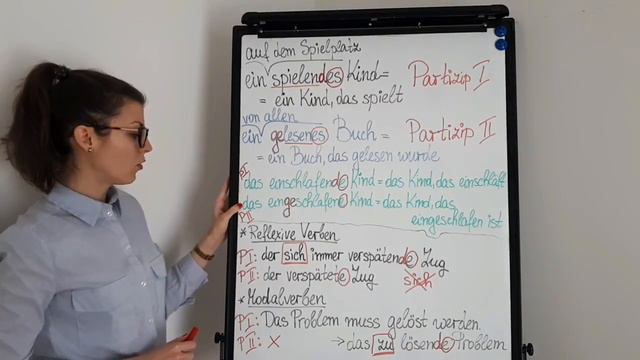 auf dem Spielplatz
ein spielendes Kind = Partizip I
= ein Kind, das spielt
von allen
ein gelesenes Buch = Partizip II
= ein Buch, das gelesen wurde
PI das einschlafende Kind = das Kind, das einschläft
das eingeschlafene Kind = das Kind, das
PII eingeschlafen ist
* Reflexive Verben
PI: der sich immer verspätende Zug
PII: der verspätete Zug sich
* Modalverben
PI: Das Problem muss gelöst werden.
PII: x → das zu lösende Problem